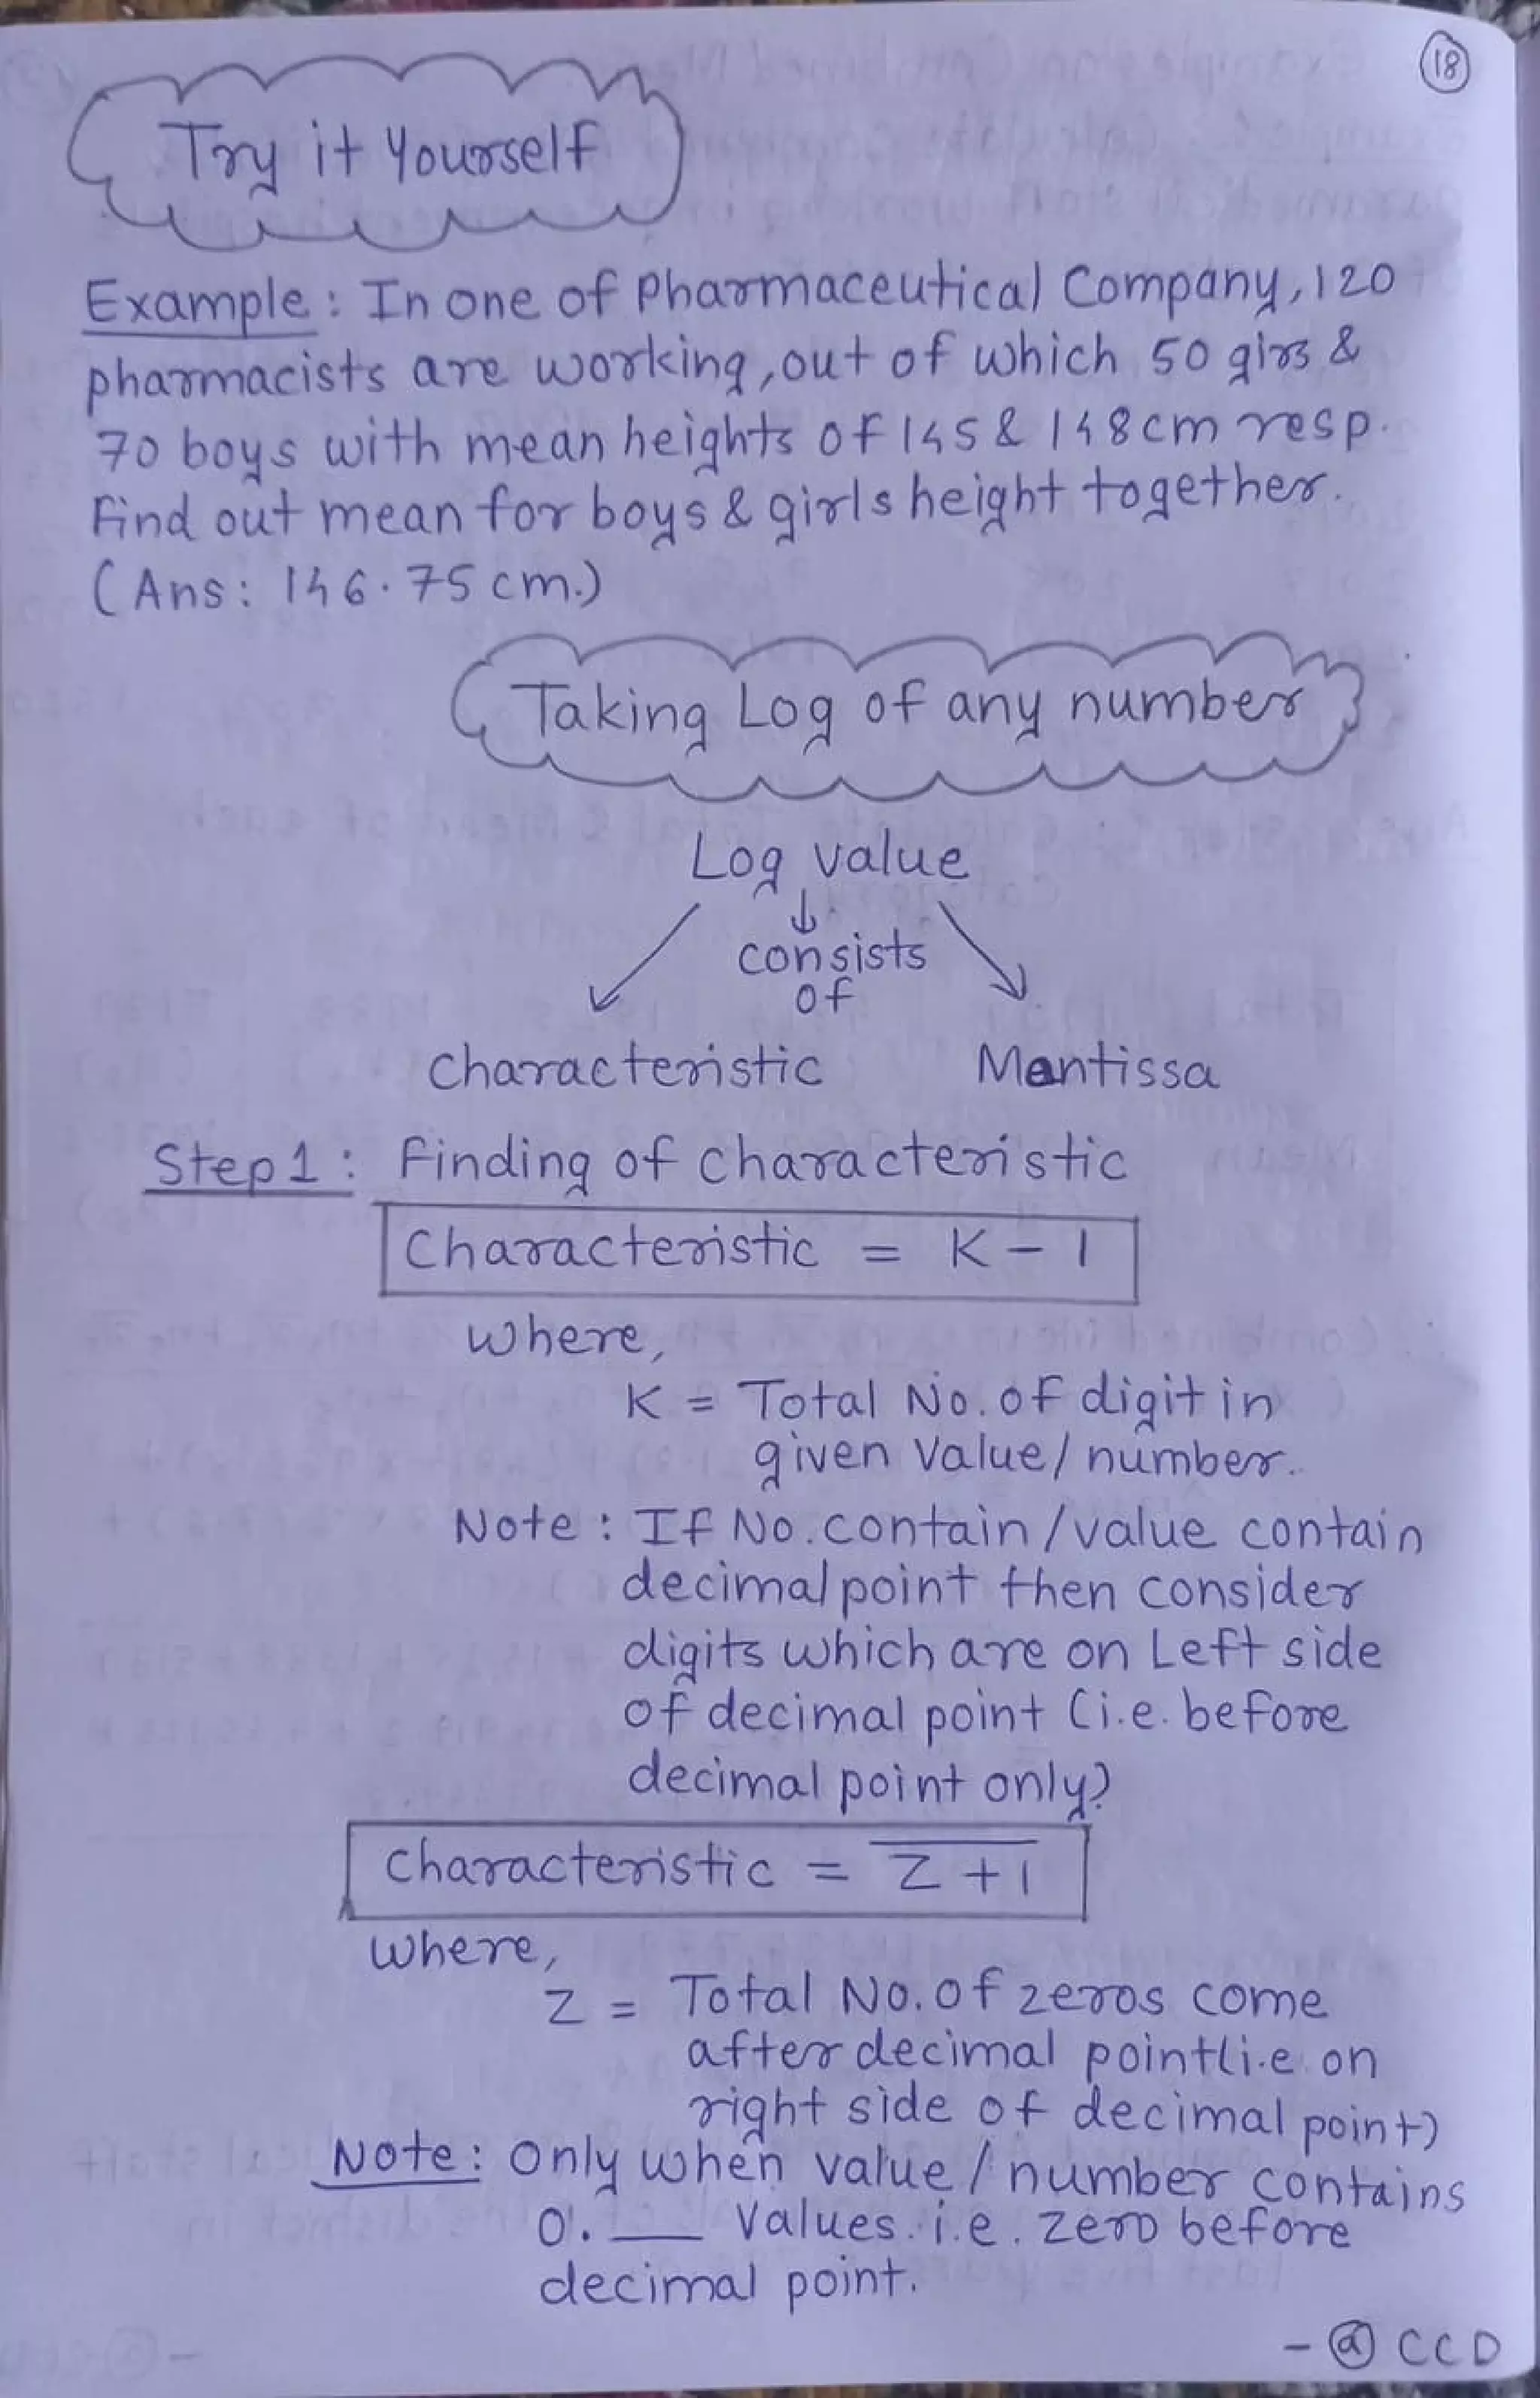 18
Try it Yourself
Example: In one of Pharmaceutical Company, 120
pharmacists are working, out of which 50 girs &
70 boys with mean heights of 145 & 148cm resp.
Find out mean for boys & girls height together.
(Ans: 146.75 cm.)
Taking Log of any number
Log value
consists
of
Characteristic Mantissa
Step 1: Finding of Characteristic
Characteristic = K - 1
where,
K = Total No. of digit in
given Value / number.
Note: If No. contain / value contain
decimal point then consider
digits which are on Left side
of decimal point (i.e. before
decimal point only)
Characteristic = \overline{Z + 1}
where,
Z = Total No. of zeros come
after decimal point (i.e on
right side of decimal point)
Note: Only when value / number contains
0. ___ Values. i.e. zero before
decimal point.
- @ CCD